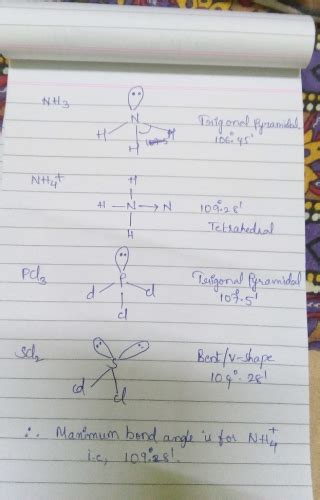 NH3
N
H H H
Trigonal Pyramidal
106°.45'
NH4+
H
H - N → N
H
109°.28'
Tetrahedral
PCl3
P
Cl Cl
Cl
Trigonal Pyramidal
107.5'
SCl2
S
Cl Cl
Bent/V-shape
109°.28'
∴ Maximum bond angle is for NH4+
i.e, 109°.28'.